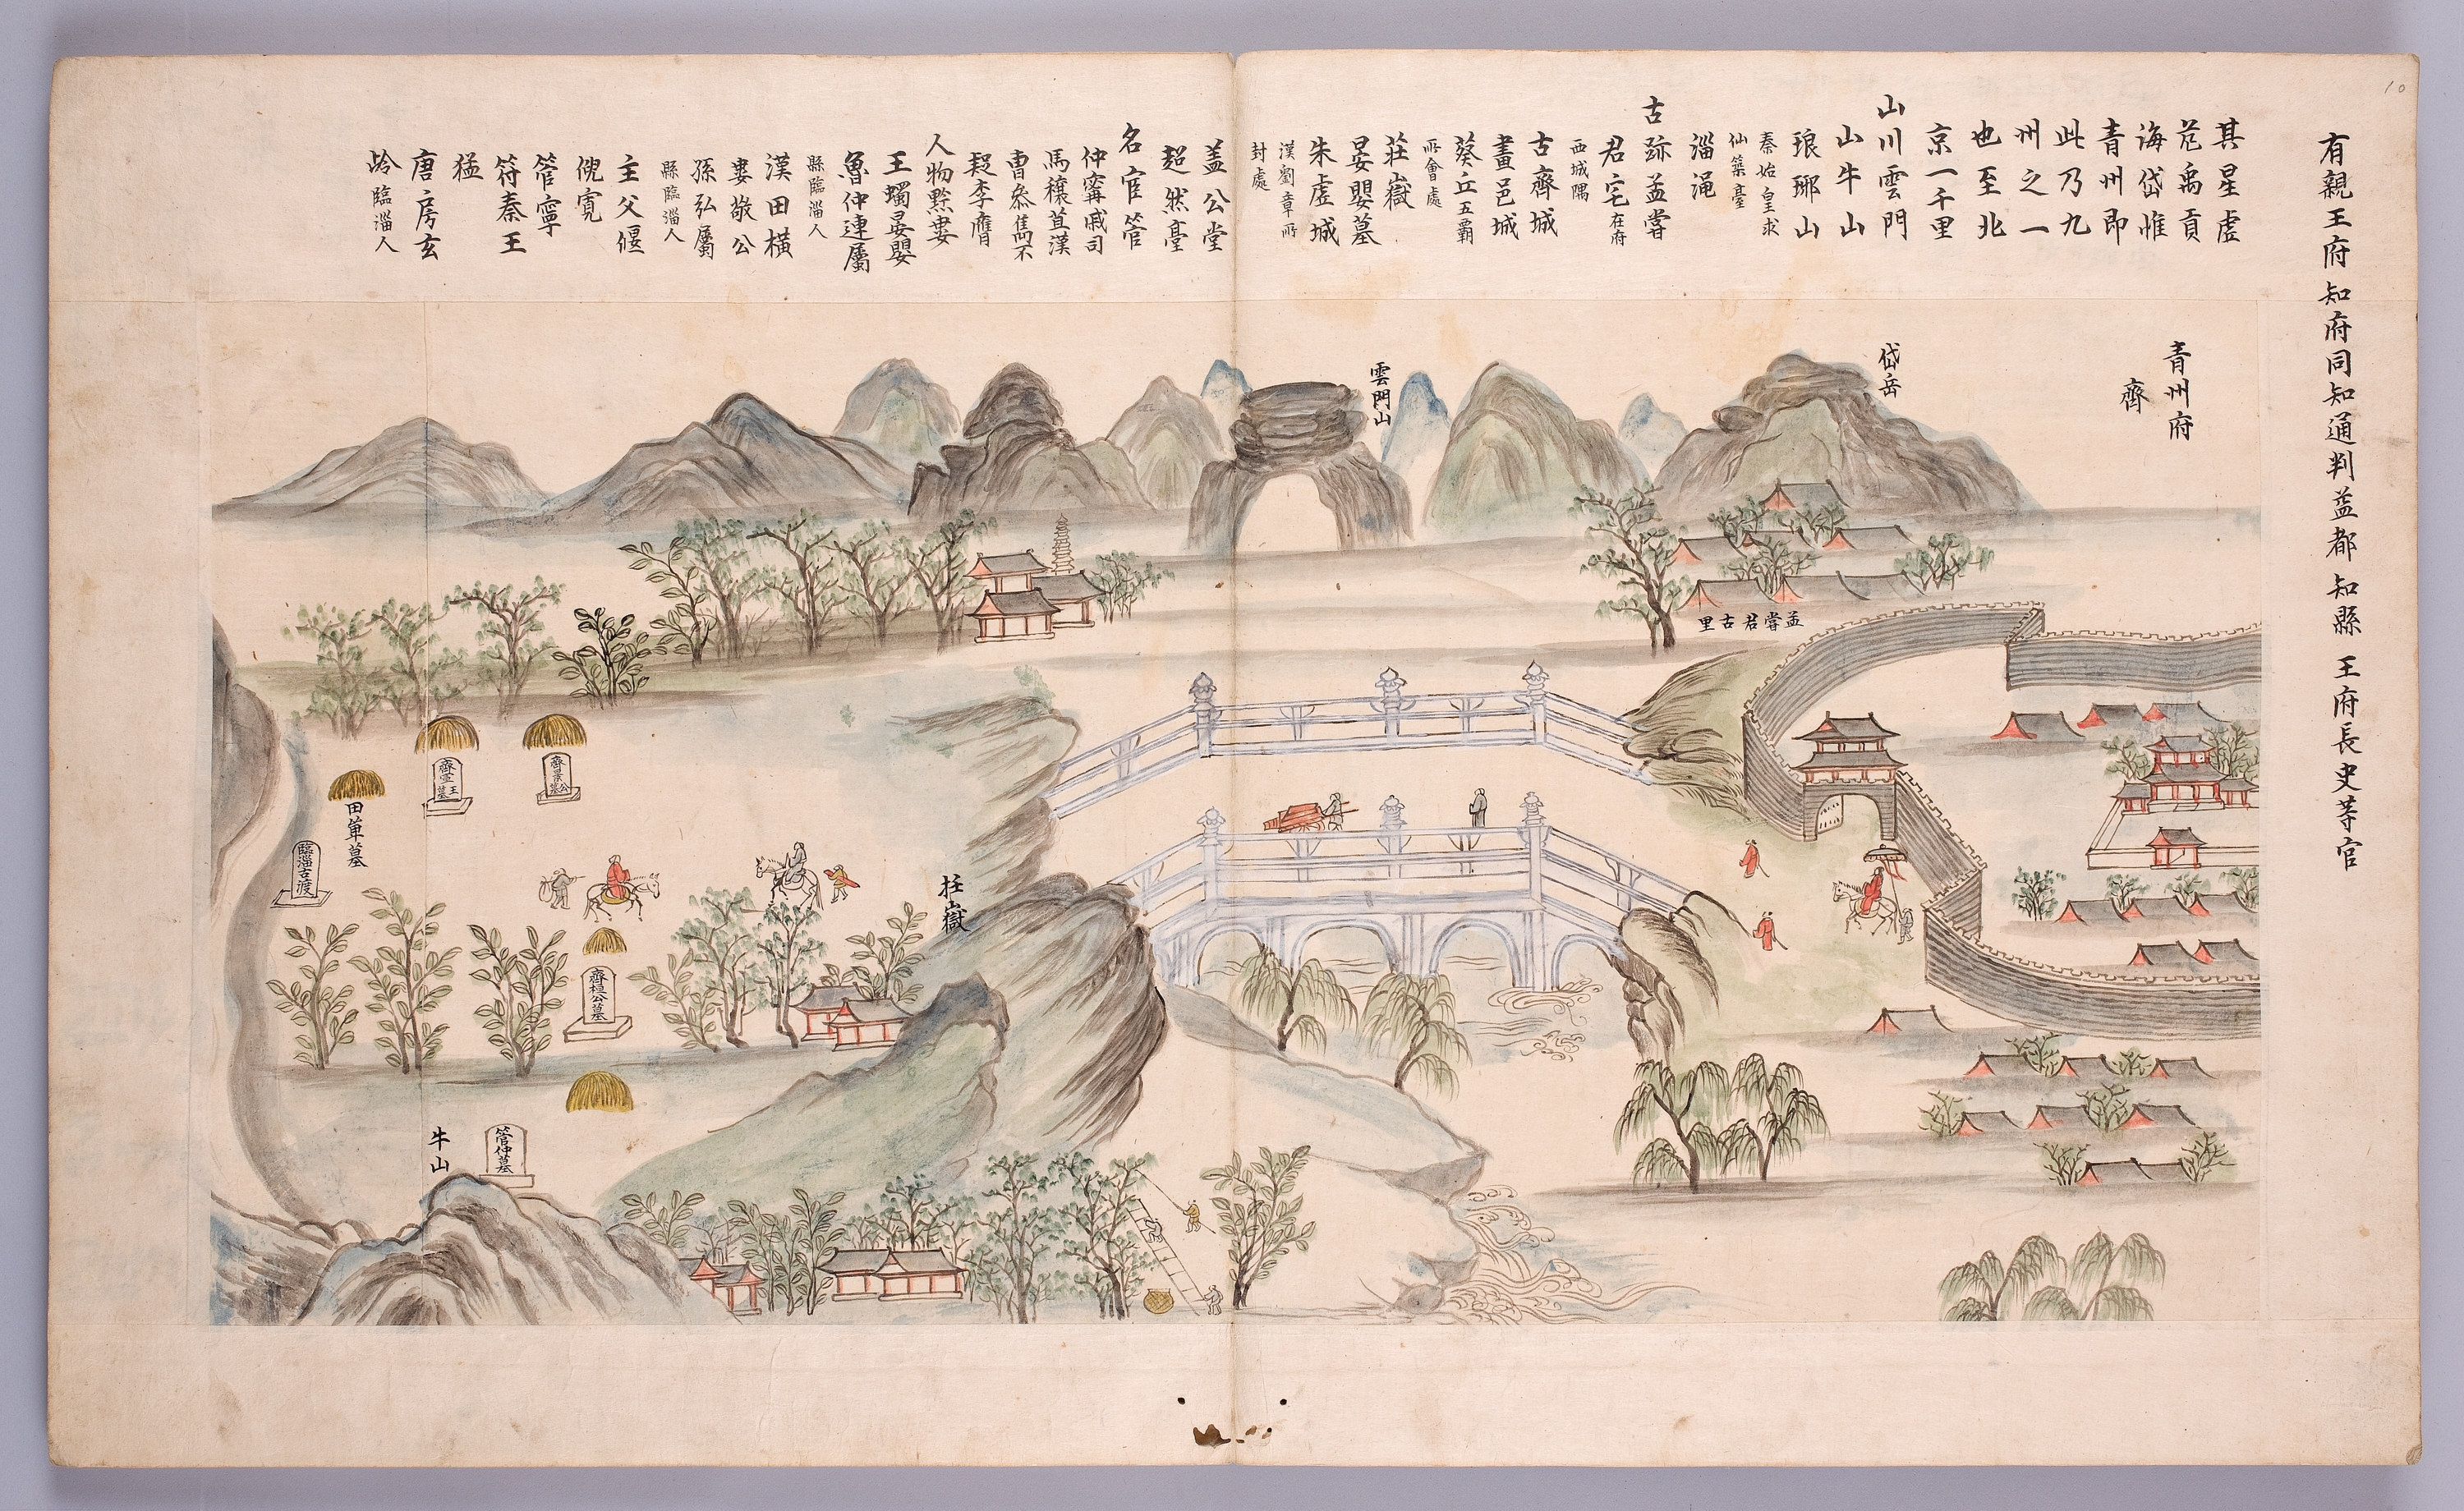 10
有親王府 知府同知通判益都 知縣 王府長史等官
其星虛
危禹貢
海岱惟
青州即
此乃九
州之一
也至北
京一千里
山川雲門
山牛山
琅琊山
秦始皇求
仙築臺
淄澠
古跡孟嘗
君宅在府
西城隅
古齊城
畫邑城
葵丘五霸
所會處
莊嶽
晏嬰墓
朱虛城
漢劉章所
封處
蓋公堂
超然臺
名宦管
仲甯戚司
馬穰苴漢
曹叅雋不
疑李膺
人物黔婁
王蠋晏嬰
魯仲連屬
縣臨淄人
漢田橫
婁敬公
孫弘屬
縣臨淄人
主父偃
倪寬
管寧
符秦王
猛
唐房玄
齡臨淄人
青州府
齊
岱岳
雲門山
孟嘗君古里
齊景公墓
齊宣王墓
田單墓
臨淄古渡
莊嶽
齊桓公墓
管仲墓
牛山